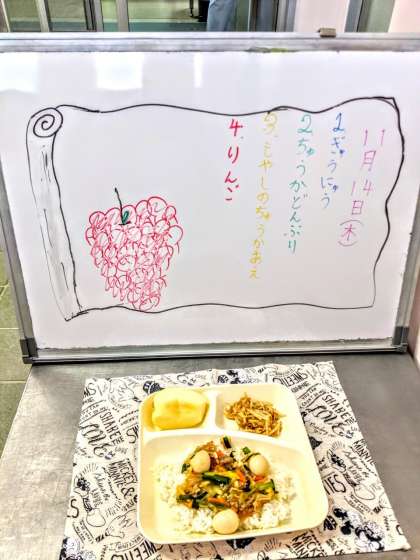 11月14日(木)
1.ぎゅうにゅう
2.ちゅうかどんぶり
3.もやしのちゅうかあえ
4.りんご
SHAKE
MICKEY
MINNIE